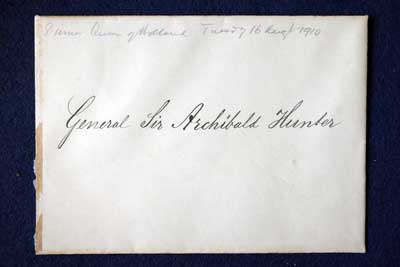 Dinner Queen of Holland Tuesday 16 Augt 1910
General Sir Archibald Hunter